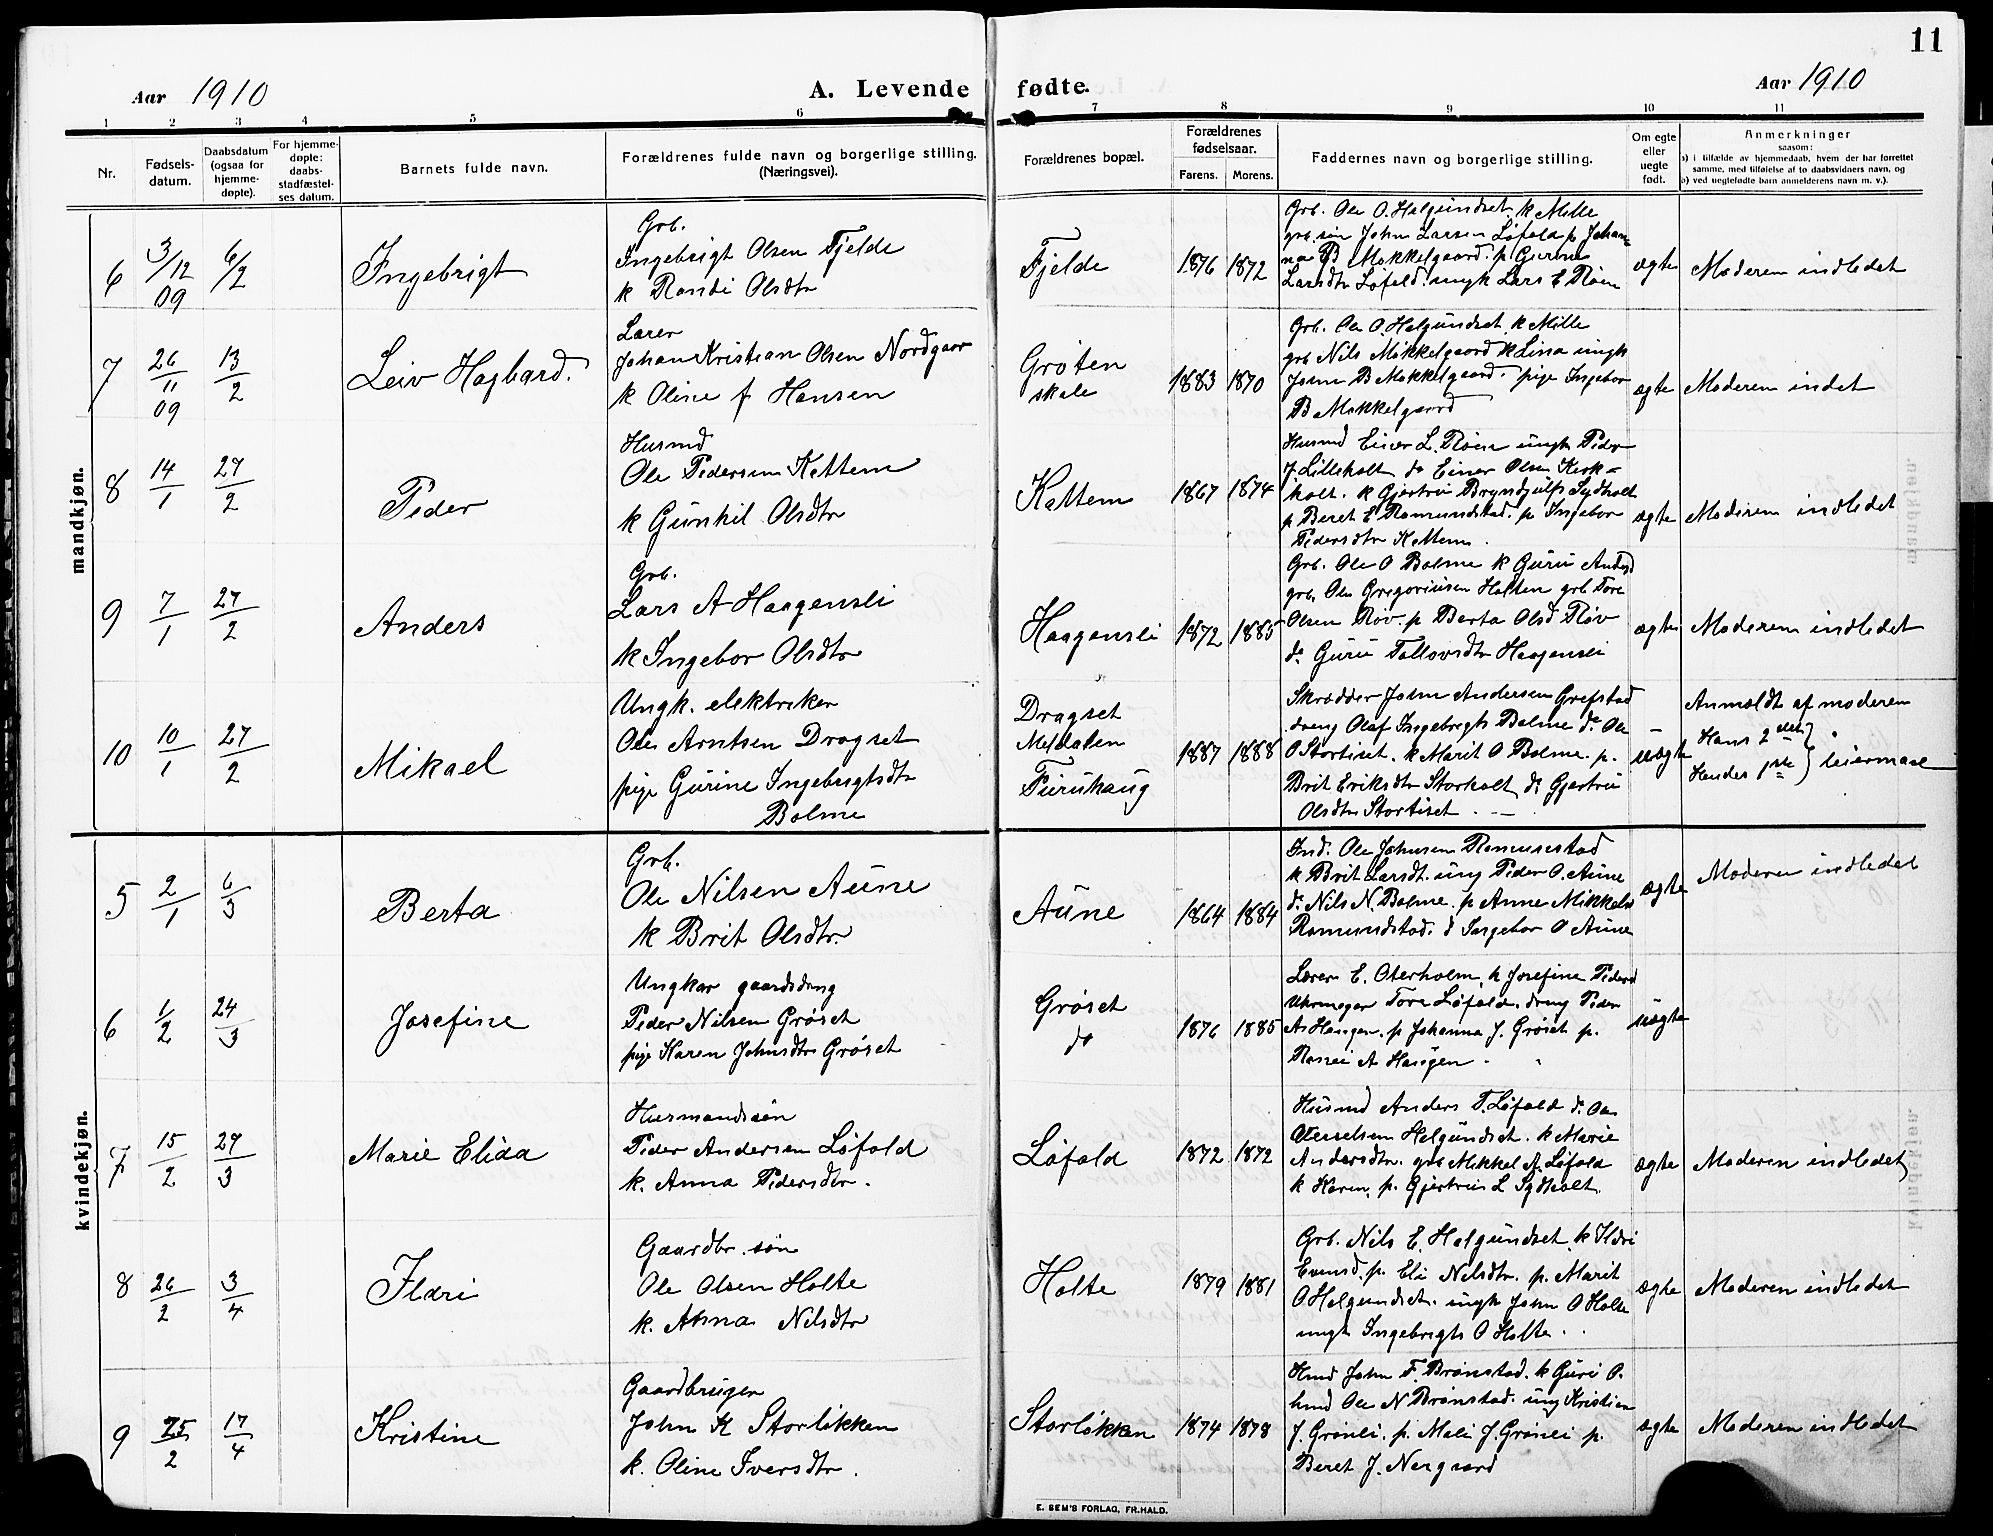 11
Aar 1910
A. Levende fødte.
Aar 1910
1 2 3 4 5 6 7 8 9 10 11
Nr.
Fødsels-
datum.
Daabsdatum
(ogsaa for
hjemme-
døpte).
For hjemme-
døpte:
daabs-
stadfæstel-
ses datum.
Barnets fulde navn.
Forældrenes fulde navn og borgerlige stilling.
(Næringsvei).
Forældrenes bopæl.
Forældrenes
fødselsaar.
Farens. Morens.
Faddernes navn og borgerlige stilling.
Om egte
eller
uegte
født.
Anmerkninger
saasom:
a) i tilfælde av hjemmedaab, hvem der har forrettet
samme, med tilføielse af to daabsvidners navn, og
b) ved uegtefødte barn anmelderens navn m. v.).
mandkjøn.
6
3/12 09
6/2
Ingebrigt
Grb.
Ingebrigt Olsen Fjelde
k Randi Olsdtr
Fjelde
1876 1872
Grb. Ole O. Helgundset k Mille
grb. søn John Larsen Løfald p Johan-
na B Mokkelgaard. p. Gurine
Larsdtr Løfald. ungk Lars E Røen
ægte
Moderen indledet
7
26/11 09
13/2
Leiv Hagbard.
Lærer
Johan Kristian Olsen Nordgaar
k Oline f Hansen
Grøten
skole
1883 1870
Grb. Ole O. Helgundset k Mille
grb Nils Mokkelgaard k Lina ungk
John B Mokkelgaard. pige Ingebor
B Mokkelgaard
ægte
Moderen indet
8
14/1
27/2
Peder
Husmd
Ole Pedersen Kattem
k Gunhil Olsdtr
Kattem
1867 1874
Husmd Einer L. Røen ungk Peder
J Lilleholt do Einer Olsen Kirk-
holt. k Gjertru Bryndjulfs Sydholt
p Beret E Romundstad. p Ingebor
Pedersdtr Kattem.
ægte
Moderen indledet
9
7/1
27/2
Anders
Grb.
Lars A Haagensli
k Ingebor Olsdtr
Haagensli
1872 1885
Grb. Ole O Bolme k Guru Andersd
grb. Ole Gregoriusen Holten grb Tore
Olsen Røv. p Berta Olsd Røv
do Guru Tollovsdtr Haagensli
ægte
Moderen indledet
10
10/1
27/2
Mikael
Ungk. elektriker
Ole Arntsen Dragset
pige Gurine Ingebrigtsdtr
Bolme
Dragset
Meldalen
Furuhaug
1887 1888
Skrædder John Andersen Grefstad
dreng Olaf Ingebrigts Bolme do Ole
O Stortiset. k Marit O Bolme. p.
Brit Eriksdtr Storholt do Gjertru
Olsdtr Stortiset.
uægte
Anmeldt af moderen
Hans 2det
Hendes 1ste } leiermaal
kvindekjøn.
5
2/1
6/3
Berta
Grb.
Ole Nilsen Aune
k Brit Olsdtr.
Aune
1864 1884
Ind. Ole Johnsen Romunstad
k Brit Larsdt. ung Peder O. Aune
d. Nils N. Bolme. p Anne Mikkelsd
Romundstad. d Ingebor O Aune
ægte
Moderen indledet
6
1/2
24/3
Josefine
Ungkar gaardsdreng
Peder Nilsen Grøset
pige Karen Johnsdtr Grøset
Grøset
do
1876 1885
Lærer E. Oterholm, k Josefine Pedersd
Uhrmager Tore Løfald. dreng Peder
A. Haugen. p Johanna J. Grøset p.
A Haugen.
uægte
7
15/2
27/3
Marie Elida
Husmandssøn
Peder Andersen Løfald
k. Anna Pedersdtr.
Løfald
1872 1872
Husmd Anders T. Løfald do Ole
Helgundset. k Marie
Andersdtr. grb Mikkel A. Løfald
k Karen, p. Gjertru L Sydholt.
ægte
Moderen indledet
8
26/2
3/4
Ildri
Gaardbr. søn
Ole Olsen Holte
k. Anna Nilsdtr
Holte
1879 1881
Grb. Nils E. Helgundset k Ildri
Evensd. p. Eli Nilsdtr. p. Marit
O Helgundset. ungk John O Holte
ungk Ingebrigt O Holte.
ægte
Moderen indledet
9
25/2
17/4
Kristine
Gaardbruger
John K Storløkken
k. Oline Iversdtr.
Storløkken
1874 1878
Hmd John F. Brønstad. k Guri O.
hmd Ole N Brønstad. ung Kristian
J. Grønli. p. Mali J. Grønli p.
Beret J. Nergaard
ægte
Moderen indledet
E. SEM'S FORLAG, FR.HALD.